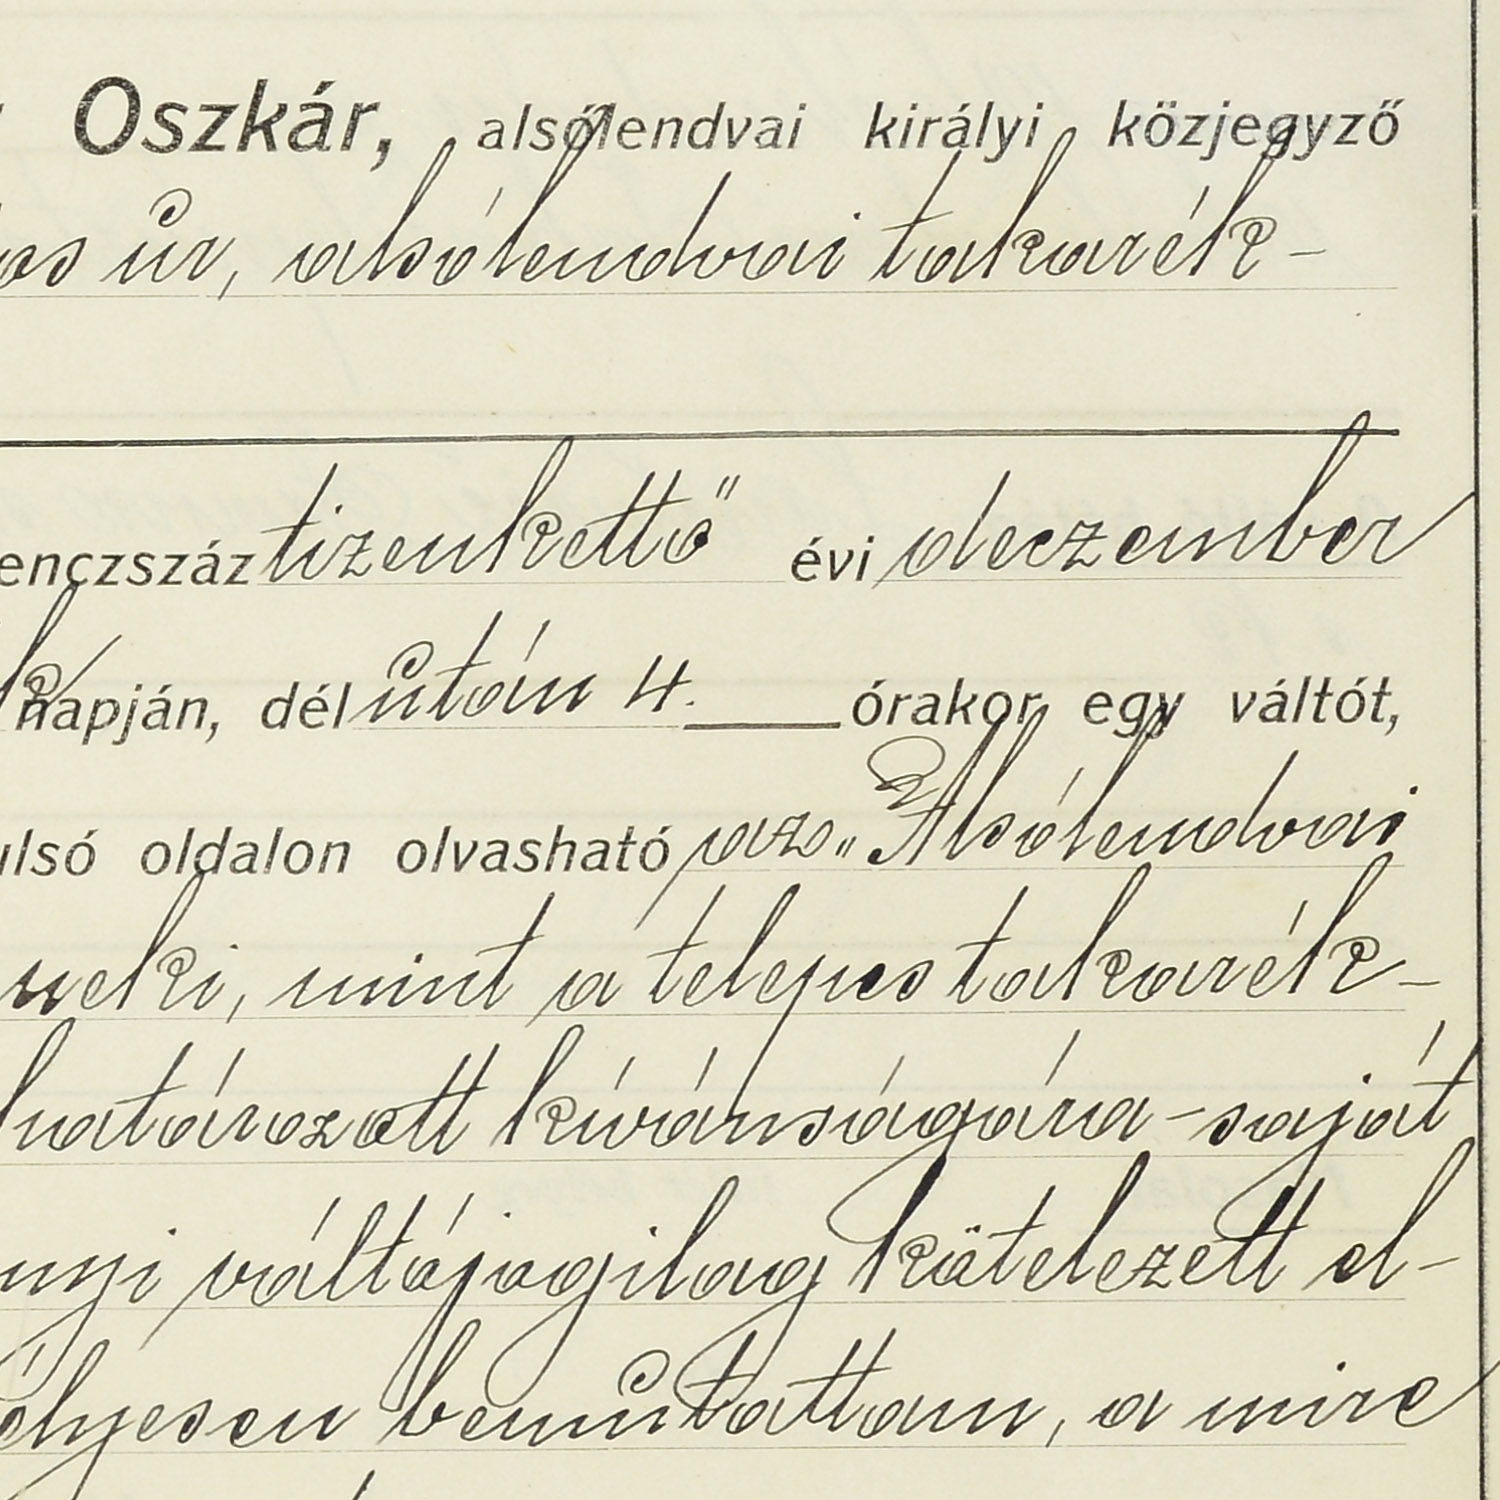 Oszkár, alsólendvai királyi közjegyző
úr, alsólendvai takarék-
enczszáz tizenkettő évi deczember
napján, dél után 4. órakor egy váltót,
ulsó oldalon olvasható az „Alsólendvai
neki, mint a telepes takarék-
határozott kívánságára - saját
nyi váltójogilag kötelezett el-
élyesen bemutattam, a mire